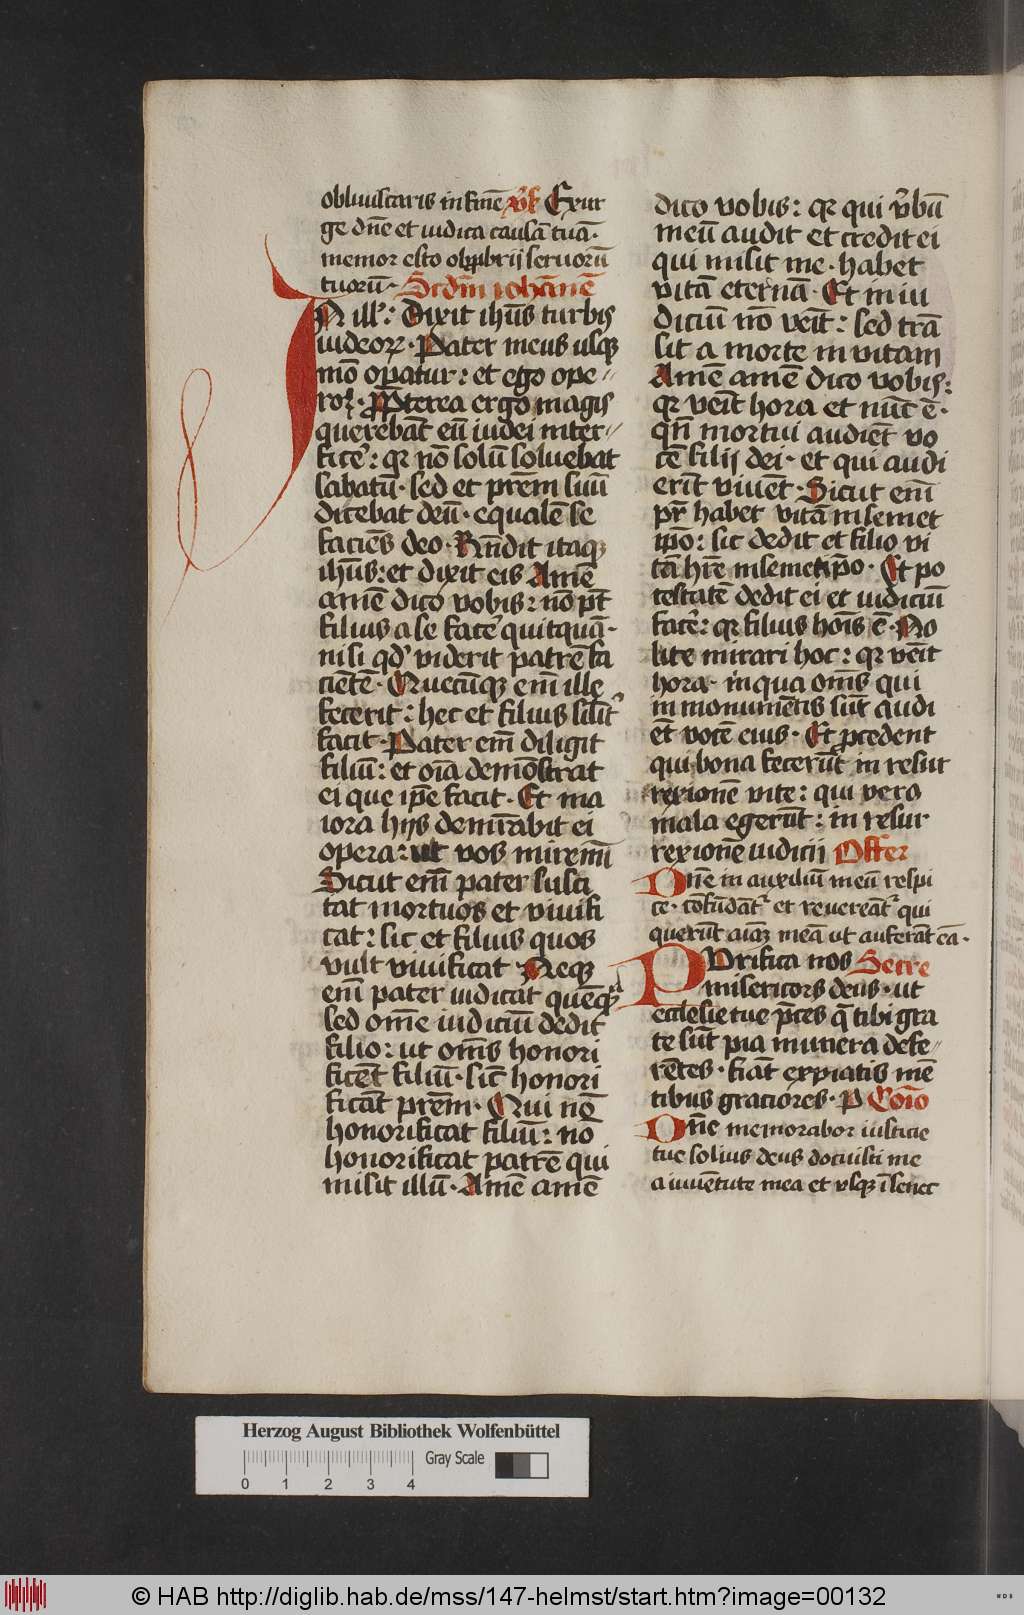 obliuiscaris in finē v̄s Exur
ge dn̄e et iudica causā tuā·
memor esto obp̄pbrij seruorū
tuorū· Scdm̄ iohānē
IN ill': Dixit ihūs turbis
iudeoꝝ· Pater meus usqꝫ
mō opatur: et ego ope-
ror· Propterea ergo magis
querebāt eū iudei inter-
fice': qꝛ nō solū soluebat
sabatū· sed et prēm suū
dicebat deū· equalē se
faciēs deo· Rn̄dit itaqꝫ
ihūs: et dixit eis Amē
amē dico vobis: nō pt̄
filius a se face' quitquā·
nisi qd' viderit patrē fa
ciētē· Quecūqꝫ em̄ ille
fecerit: hec et filius silit'
facit· Pater em̄ diligit
filiū: et oīa demōstrat
ei que ip̄e facit· Et ma
iora hijs demr̄abit ei
opera: ut vos miremī
Sicut em̄ pater susci
tat mortuos et viuifi
cat: sic et filius quos
vult viuificat Neqꝫ
em̄ pater iudicat quēqꝫ
sed om̄e iudiciū dedit
filio: ut om̄s honori
ficēt filiū· sic̄ honori
ficāt prēm· Qui nō
honorificat filiū: nō
honorificat patrē qui
misit illū· Amē amē
dico vobis: qꝛ qui v̄bū
meū audit et credit ei
qui misit me· habet
vitā eternā· Et in iu
diciū nō veit̄: sed trā
sit a morte in vitam
Amē amē dico vobis:
qꝛ veit̄ hora et nūc ē·
qn̄ mortui audiēt vo
cē filij dei· et qui audi
erīt viuēt· Sicut em̄
pr̄ habet vitā in semet
ip̄o: sic dedit et filio vi
tā hr̄e in semetip̄o· Et po
testatē dedit ei et iudiciū
face': qꝛ filius hoīs ē· No
lite mirari hoc: qꝛ veit̄
hora· in qua om̄s qui
in monumētis sūt audi
ēt vocē eius· Et pcedent
qui bona fecerūt in resur
rexionē vite: qui vero
mala egerūt: in resur
rexionē iudicii Offer
Dn̄e in auxiliū meū respi
ce· cōfūdāt' et reuereāt' qui
querūt aīaꝫ meā ut auferāt eā·
PUrifica nos Secre
misericors deus· ut
ecclesie tue p̄ces q̄ tibi gra
te sūt pia munera defe-
rētes· fiāt expiatis mē
tibus graciores· P Cōīo
Dn̄e memorabor iusticie
tue solius deus docuisti me
a iuuētute mea et vsqꝫ ī senec
Herzog August Bibliothek Wolfenbüttel
Gray Scale
0 1 2 3 4
© HAB http://diglib.hab.de/mss/147-helmst/start.htm?image=00132